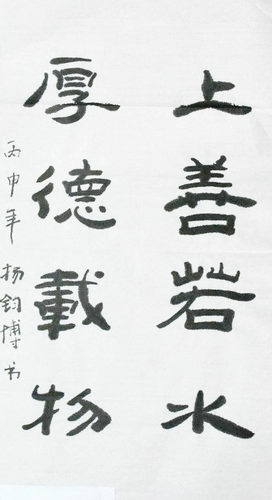 上善若水
厚德載物
丙申年 杨钧博书